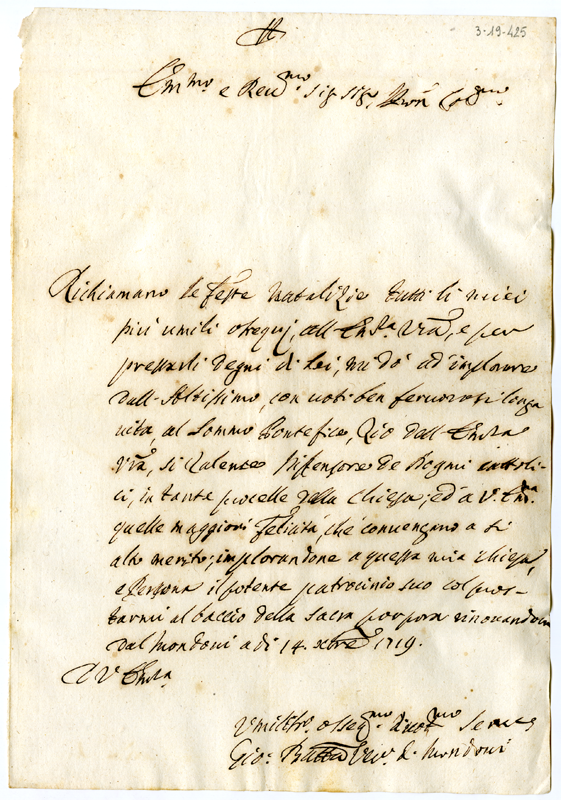 3-19-425
Em.mo e Reu.mo Sig Sig.
Richiamano le feste natalizie tutti li miei
più umili ossequij, all Em.za Vra, e per
pressarli degni di Lei, mi dò ad implorare
dall-Altissimo, con uoti ben feruorosi longa
uita, al Sommo Pontefice, Zio dell Em.za
Vra, si ualente Diffensore de Regni cattoli-
ci, in tante procelle della Chiesa; ed à V. Em.za
quelle maggiori felicità, che conuengano a si
alto merito; implorandone a questa mia chiesa,
e Persona il potente patrocinio suo col pros-
trarmi al baccio della sacra porpora
Dal Mondoui a dì 14. xbre 1719.
D V Em.za
Vmilis.o osseq.mo diuot.mo Seruo
Gio: Batta Vesc. di Mondoui